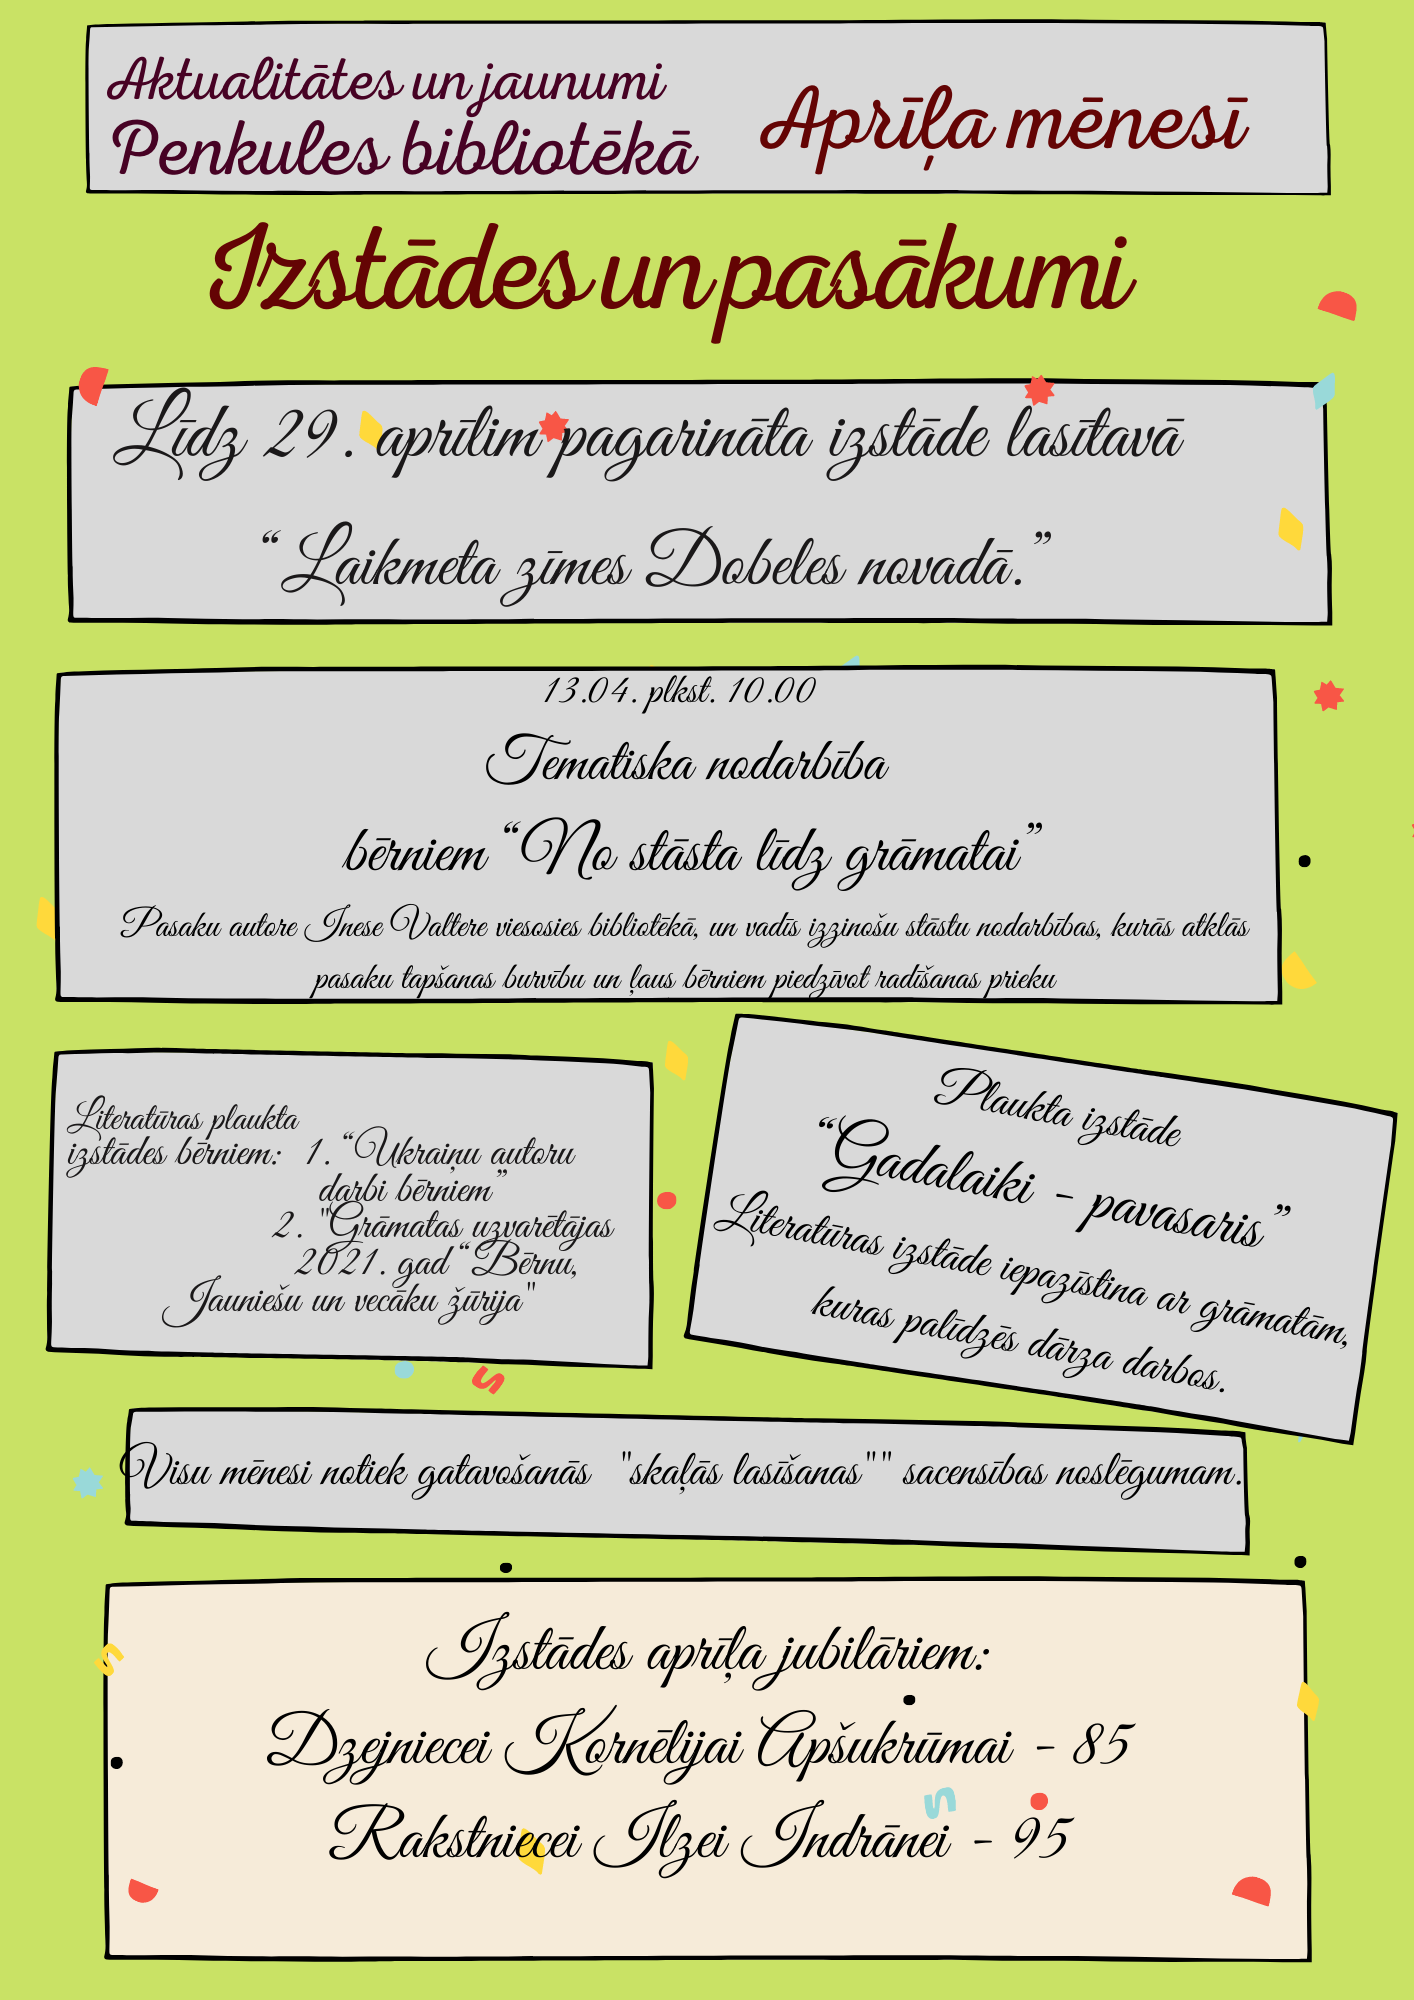 Aktualitātes un jaunumi
Penkules bibliotēkā
Aprīļa mēnesī
Izstādes un pasākumi
Līdz 29. aprīlim pagarināta izstāde lasītavā
“ Laikmeta zīmes Dobeles novadā.”
13.04. plkst. 10.00
Tematiska nodarbība
bērniem “No stāsta līdz grāmatai”
Pasaku autore Inese Valtere viesosies bibliotēkā, un vadīs izzinošu stāstu nodarbības, kurās atklās
pasaku tapšanas burvību un ļaus bērniem piedzīvot radīšanas prieku
Literatūras plaukta
izstādes bērniem: 1. “Ukraiņu autoru
darbi bērniem”
2. "Grāmatas uzvarētājas
2021. gad “Bērnu,
Jauniešu un vecāku žūrija"
Plaukta izstāde
“Gadalaiki - pavasaris”
Literatūras izstāde iepazīstina ar grāmatām,
kuras palīdzēs dārza darbos.
Visu mēnesi notiek gatavošanās "skaļās lasīšanas"" sacensības noslēgumam.
Izstādes aprīļa jubilāriem:
Dzejniecei Kornēlijai Apšukrūmai - 85
Rakstniecei Ilzei Indrānei - 95